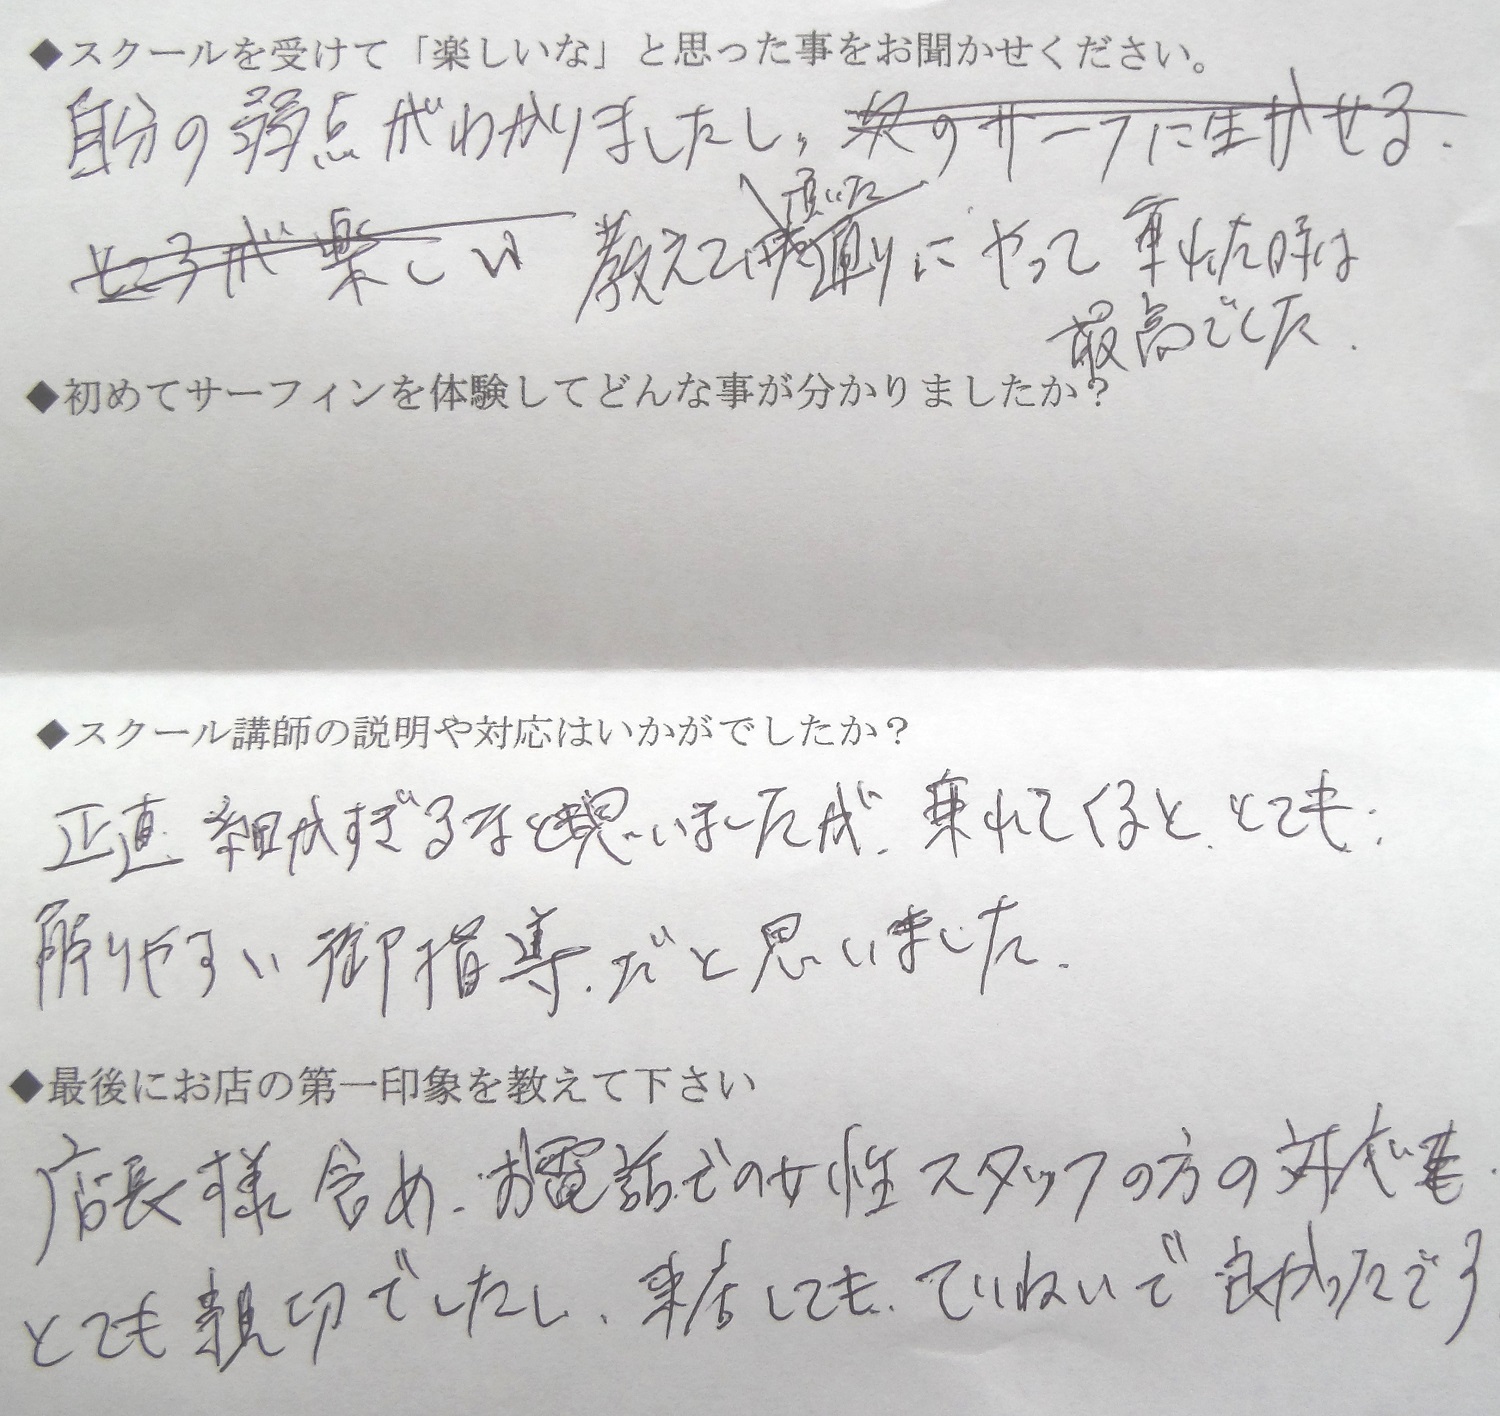 ◆スクールを受けて「楽しいな」と思った事をお聞かせください。
自分の弱点がわかりましたし、次のサーフに生かせる.
ところが楽しい 教えて頂いた通りにやって乗れた時は
最高でした.
◆初めてサーフィンを体験してどんな事が分かりましたか？
◆スクール講師の説明や対応はいかがでしたか？
正直 細かすぎるなと思いましたが、乗れてくると、とても、
解りやすい御指導、だと思いました.
◆最後にお店の第一印象を教えて下さい
店長様含め、お電話での女性スタッフの方の対応も、
とても親切でしたし、来店しても、ていねいで良かったです